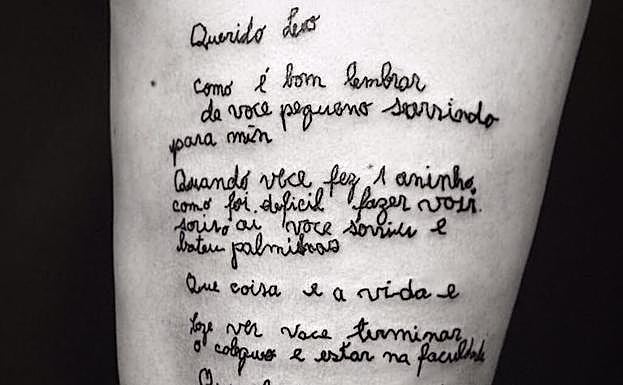 Querido Leo
como é bom lembrar
de voce pequeno sorrindo
para min
Quando voce fez 1 aninho
como foi deficil fazer voce
soriso ai voce sorriu e
bateu palminhas
Que coisa e a vida e
hoze ver voce terminar
o colegio e estar na faculdade